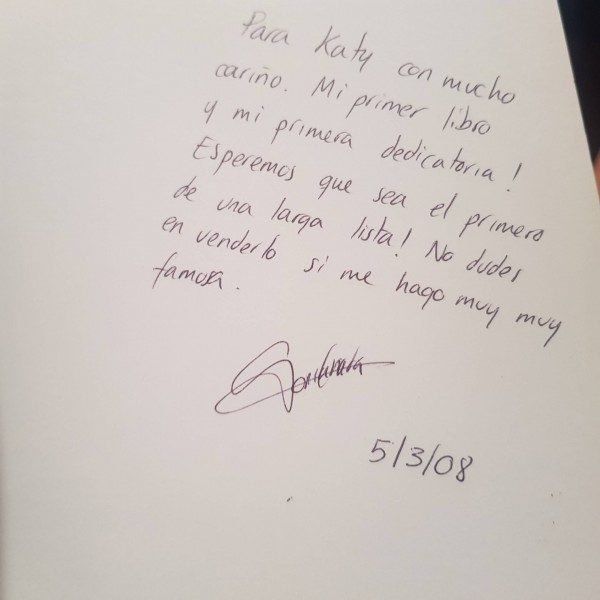 Para Katy con mucho
cariño. Mi primer libro
y mi primera dedicatoria!
Esperemos que sea el primero
de una larga lista! No dudes
en venderlo si me hago muy muy
famosa.
5/3/08